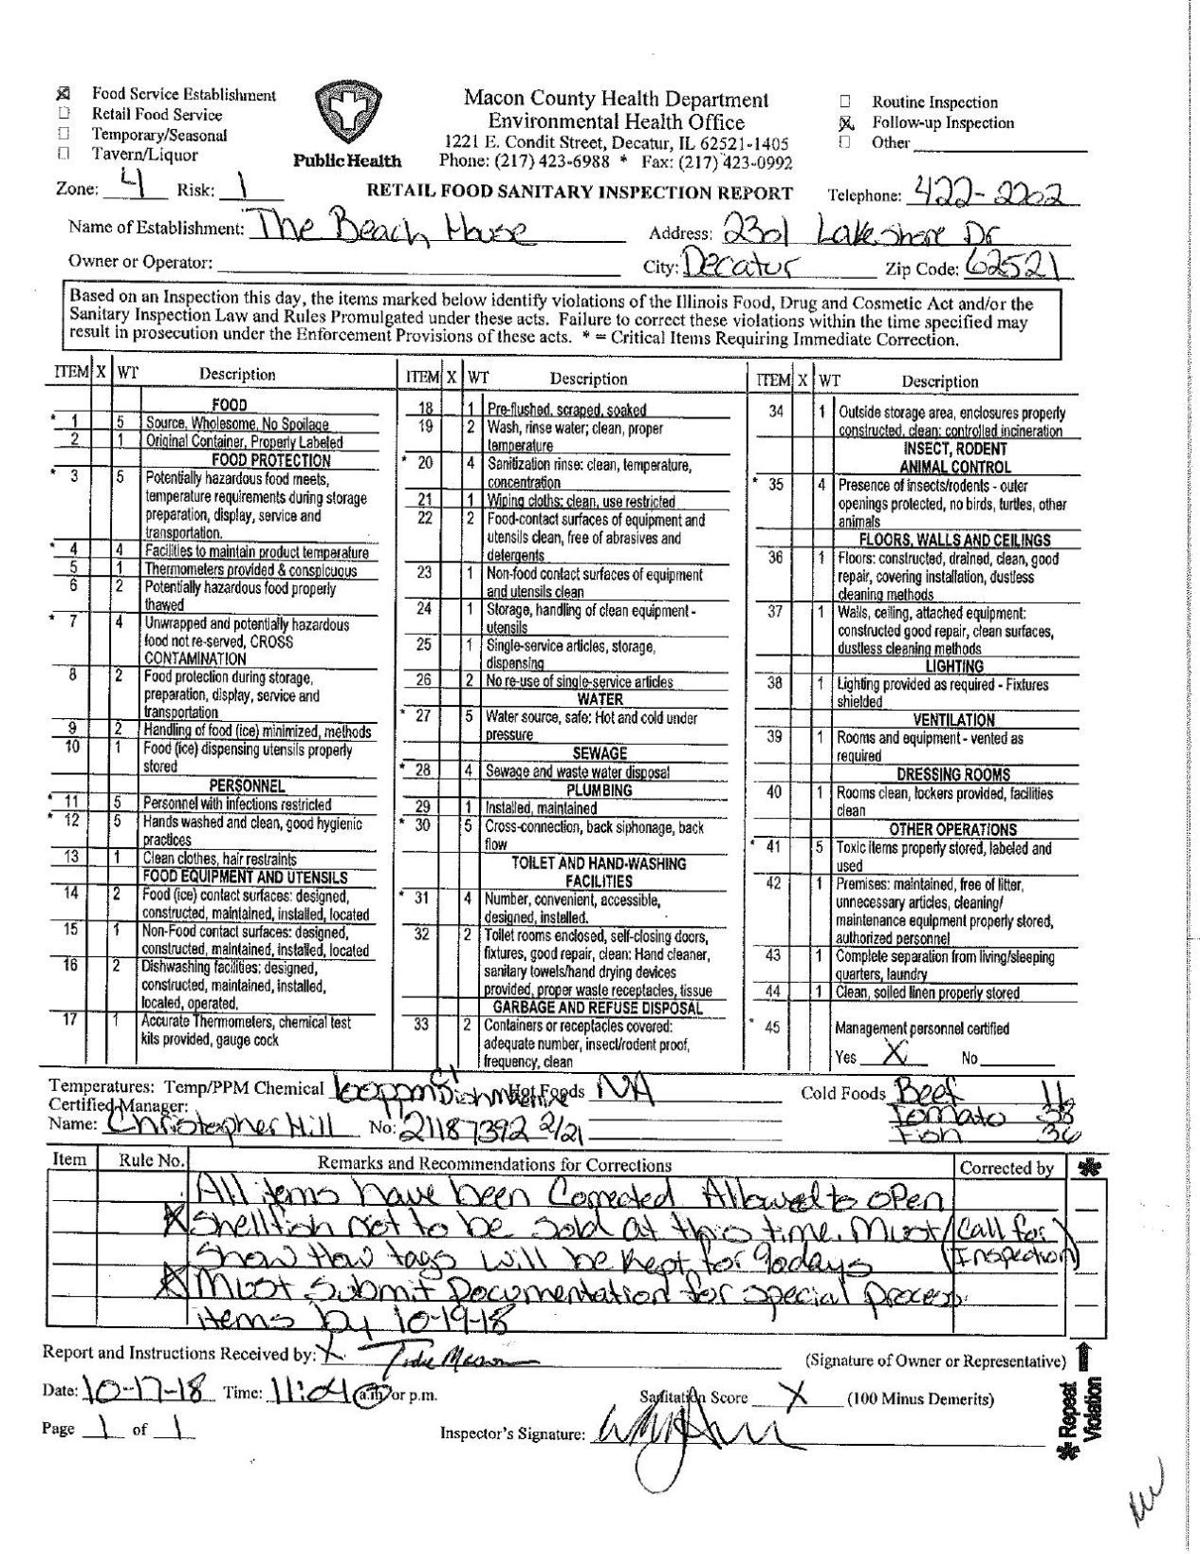 ☒ Food Service Establishment
☐ Retail Food Service
☐ Temporary/Seasonal
☐ Tavern/Liquor
Public Health
Macon County Health Department
Environmental Health Office
1221 E. Condit Street, Decatur, IL 62521-1405
Phone: (217) 423-6988 * Fax: (217) 423-0992
☐ Routine Inspection
☒ Follow-up Inspection
☐ Other
Zone: 4 Risk: 1
RETAIL FOOD SANITARY INSPECTION REPORT
Telephone: 422-2202
Name of Establishment: The Beach House
Address: 2301 Lakeshore Dr
Owner or Operator:
City: Decatur Zip Code: 62521
Based on an Inspection this day, the items marked below identify violations of the Illinois Food, Drug and Cosmetic Act and/or the
Sanitary Inspection Law and Rules Promulgated under these acts. Failure to correct these violations within the time specified may
result in prosecution under the Enforcement Provisions of these acts. * = Critical Items Requiring Immediate Correction.
ITEM X WT Description
FOOD
* 1 5 Source, Wholesome, No Spoilage
2 1 Original Container, Properly Labeled
FOOD PROTECTION
* 3 5 Potentially hazardous food meets,
temperature requirements during storage
preparation, display, service and
transportation.
* 4 4 Facilities to maintain product temperature
5 1 Thermometers provided & conspicuous
6 2 Potentially hazardous food properly
thawed
* 7 4 Unwrapped and potentially hazardous
food not re-served, CROSS
CONTAMINATION
8 2 Food protection during storage,
preparation, display, service and
transportation
9 2 Handling of food (ice) minimized, methods
10 1 Food (ice) dispensing utensils properly
stored
PERSONNEL
* 11 5 Personnel with infections restricted
* 12 5 Hands washed and clean, good hygienic
practices
13 1 Clean clothes, hair restraints
FOOD EQUIPMENT AND UTENSILS
14 2 Food (ice) contact surfaces: designed,
constructed, maintained, installed, located
15 1 Non-Food contact surfaces: designed,
constructed, maintained, installed, located
16 2 Dishwashing facilities: designed,
constructed, maintained, installed,
located, operated.
17 1 Accurate Thermometers, chemical test
kits provided, gauge cock
ITEM X WT Description
18 1 Pre-flushed, scraped, soaked
19 2 Wash, rinse water; clean, proper
temperature
* 20 4 Sanitization rinse: clean, temperature,
concentration
21 1 Wiping cloths: clean, use restricted
22 2 Food-contact surfaces of equipment and
utensils clean, free of abrasives and
detergents
23 1 Non-food contact surfaces of equipment
and utensils clean
24 1 Storage, handling of clean equipment -
utensils
25 1 Single-service articles, storage,
dispensing
26 2 No re-use of single-service articles
WATER
* 27 5 Water source, safe: Hot and cold under
pressure
SEWAGE
* 28 4 Sewage and waste water disposal
PLUMBING
29 1 Installed, maintained
* 30 5 Cross-connection, back siphonage, back
flow
TOILET AND HAND-WASHING
FACILITIES
* 31 4 Number, convenient, accessible,
designed, installed.
32 2 Toilet rooms enclosed, self-closing doors,
fixtures, good repair, clean: Hand cleaner,
sanitary towels/hand drying devices
provided, proper waste receptacles, tissue
GARBAGE AND REFUSE DISPOSAL
33 2 Containers or receptacles covered:
adequate number, insect/rodent proof,
frequency, clean
ITEM X WT Description
34 1 Outside storage area, enclosures properly
constructed, clean: controlled incineration
INSECT, RODENT
ANIMAL CONTROL
* 35 4 Presence of insects/rodents - outer
openings protected, no birds, turtles, other
animals
FLOORS, WALLS AND CEILINGS
36 1 Floors: constructed, drained, clean, good
repair, covering installation, dustless
cleaning methods
37 1 Walls, ceiling, attached equipment:
constructed good repair, clean surfaces,
dustless cleaning methods
LIGHTING
38 1 Lighting provided as required - Fixtures
shielded
VENTILATION
39 1 Rooms and equipment - vented as
required
DRESSING ROOMS
40 1 Rooms clean, lockers provided, facilities
clean
OTHER OPERATIONS
* 41 5 Toxic items properly stored, labeled and
used
42 1 Premises: maintained, free of litter,
unnecessary articles, cleaning/
maintenance equipment properly stored,
authorized personnel
43 1 Complete separation from living/sleeping
quarters, laundry
44 1 Clean, soiled linen properly stored
* 45 Management personnel certified
Yes X No
Temperatures: Temp/PPM Chemical 100ppm Cl Dishmachine Hot Foods NA Cold Foods Beef
Tomato 38
Fish 36
Certified Manager:
Name: Christopher Hill No: 21187392 2/21
Item Rule No. Remarks and Recommendations for Corrections Corrected by *
All items have been Corrected Allowed to open
* Shellfish not to be sold at this time. Must (Call for
Show How tags will be kept for 90days Inspection)
* Must Submit Documentation for special process
items by 10-19-18
Report and Instructions Received by: X (Signature of Owner or Representative)
Date: 10-17-18 Time: 11:04 a.m. or p.m. Sanitation Score X (100 Minus Demerits)
Page 1 of 1 Inspector's Signature:
* Repeat
Violation